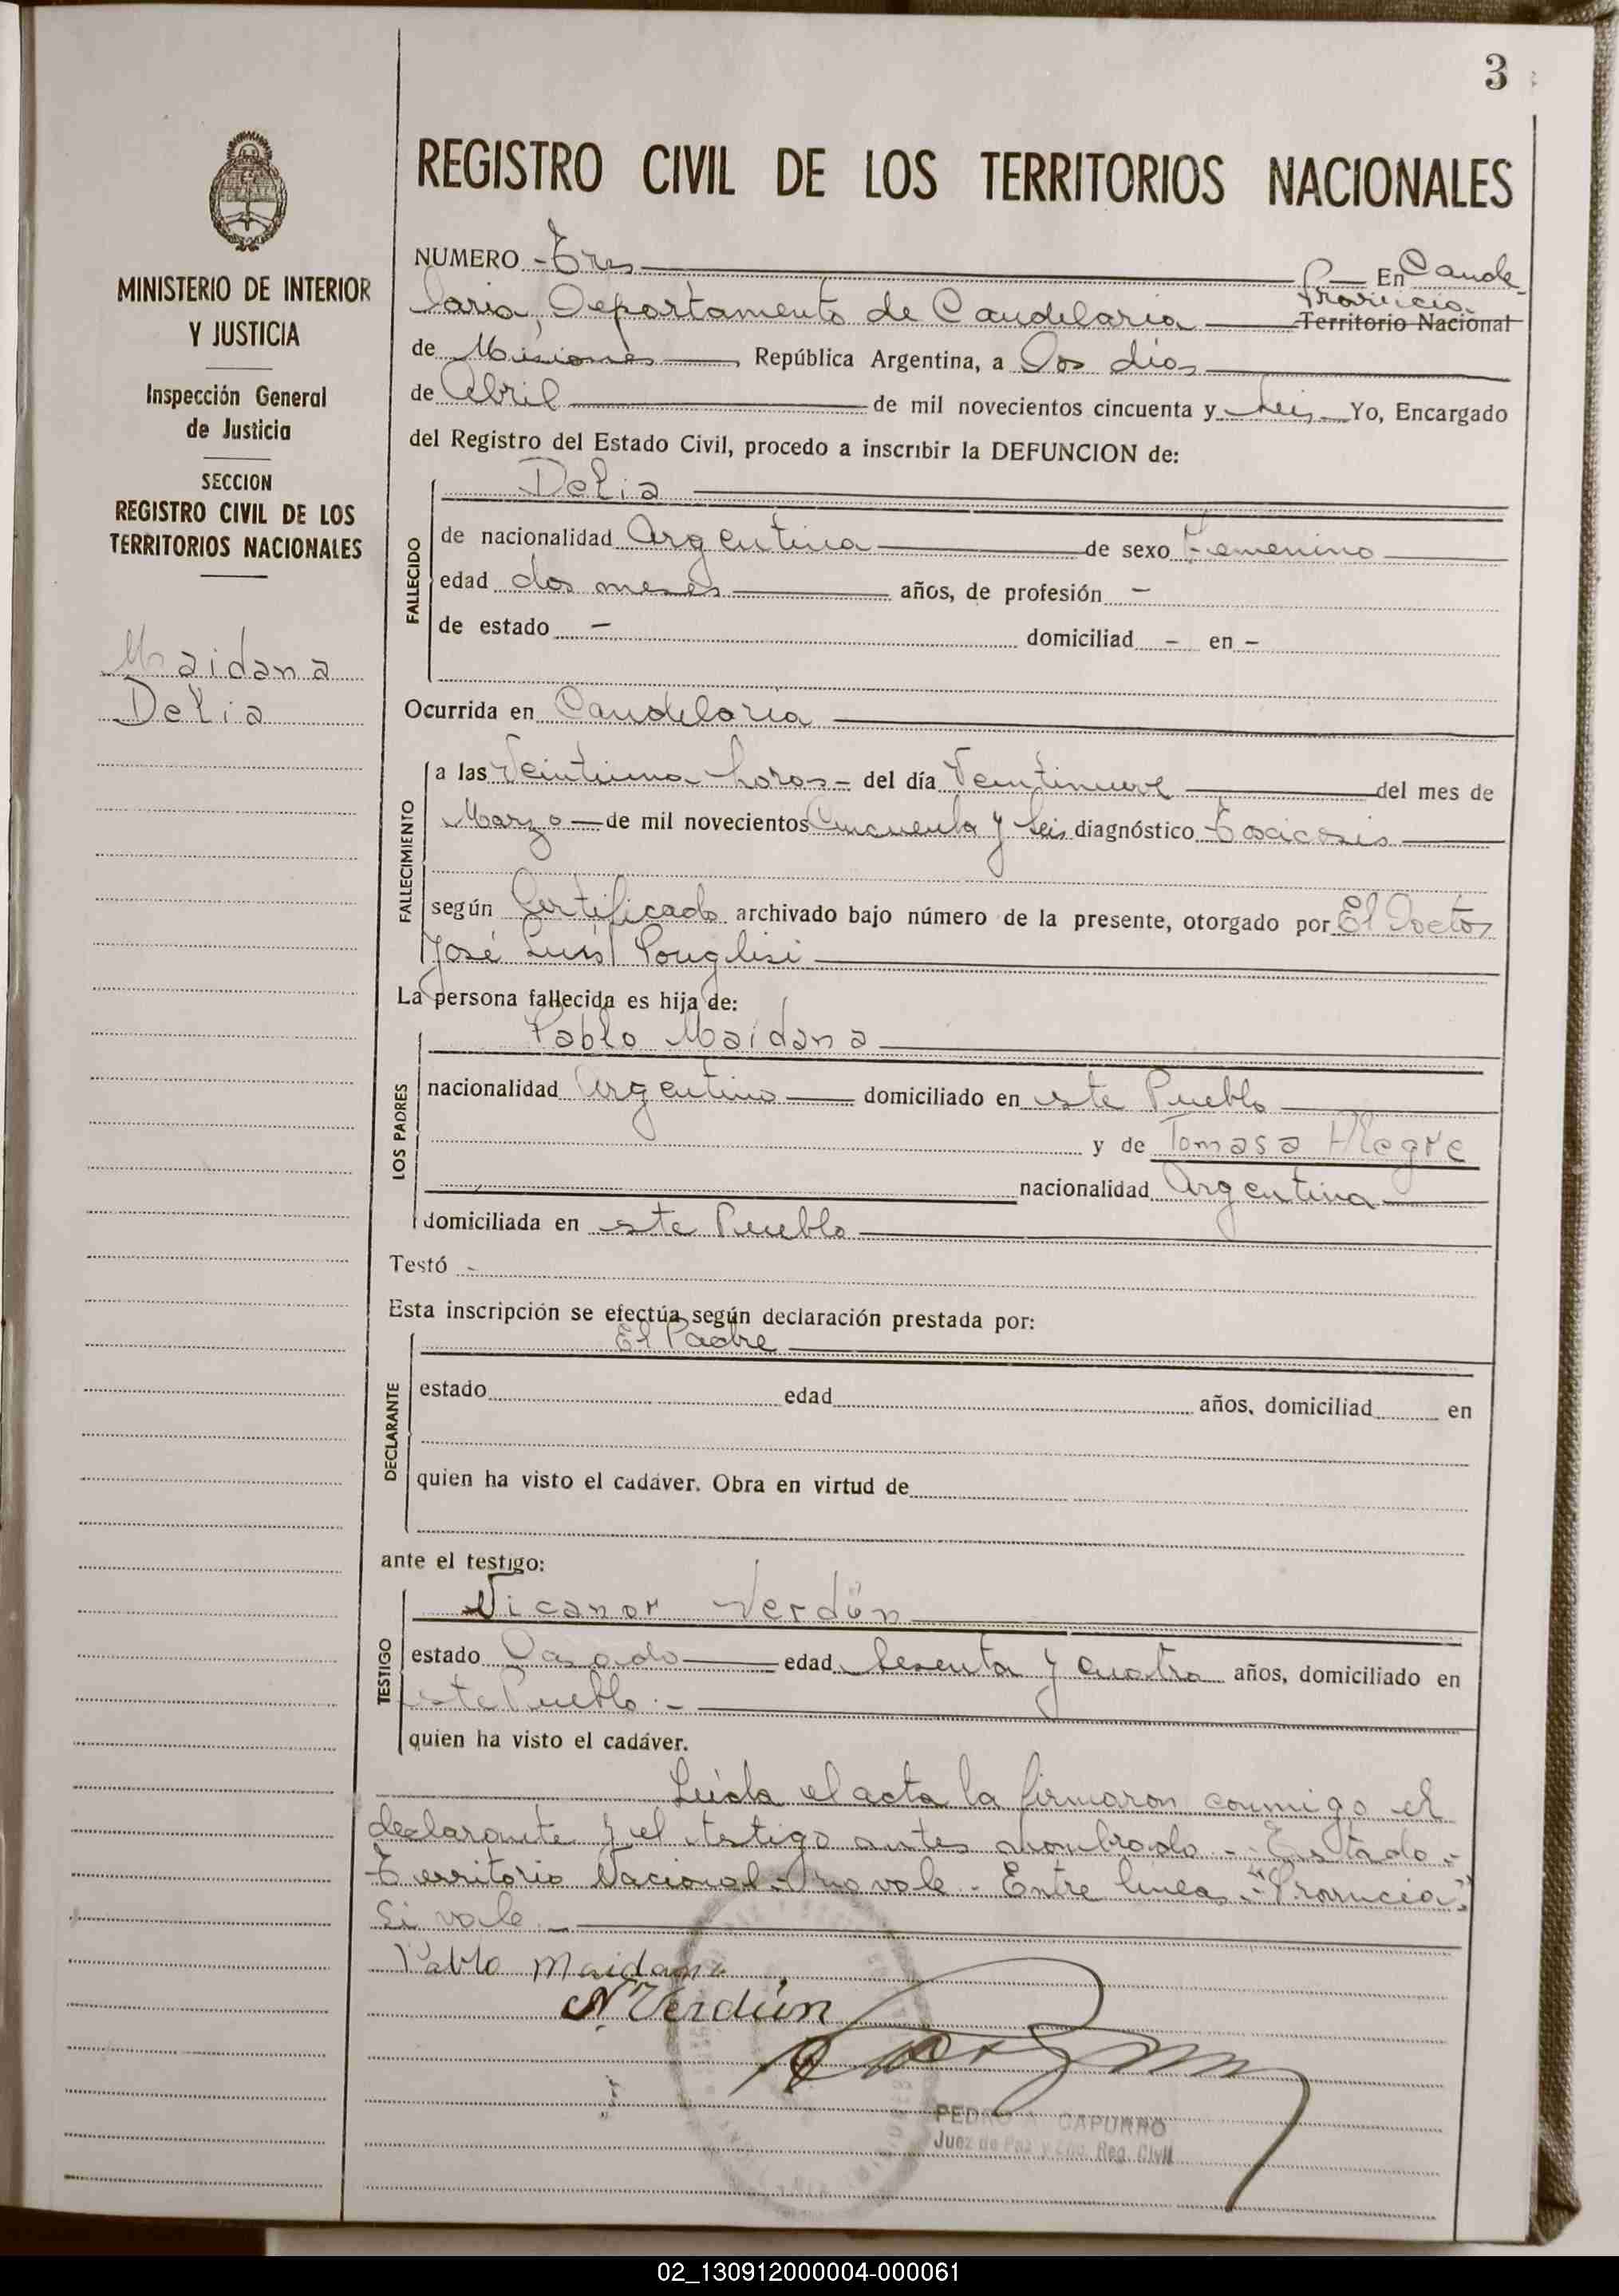 3
REGISTRO CIVIL DE LOS TERRITORIOS NACIONALES
MINISTERIO DE INTERIOR
Y JUSTICIA
Inspección General
de Justicia
SECCION
REGISTRO CIVIL DE LOS
TERRITORIOS NACIONALES
Maidana
Delia
NUMERO - Tres En Cande
Provincia
laria, Departamento de Candelaria Territorio Nacional
de Misiones, República Argentina, a Dos días
de Abril de mil novecientos cincuenta y seis Yo, Encargado
del Registro del Estado Civil, procedo a inscribir la DEFUNCION de:
Delia
FALLECIDO
de nacionalidad Argentina de sexo Femenino
edad dos meses años, de profesión -
de estado - domiciliad - en -
Ocurrida en Candelaria
FALLECIMIENTO
a las Veintiuna horas - del día Veintinueve del mes de
Marzo de mil novecientos Cincuenta y seis diagnóstico Toxicosis
según Certificado archivado bajo número de la presente, otorgado por El Doctor
José Luis Pouglisi
La persona fallecida es hija de:
Pablo Maidana
LOS PADRES
nacionalidad Argentino domiciliado en este Pueblo
y de Tomasa Alegre
nacionalidad Argentina
domiciliada en este Pueblo
Testó -
Esta inscripción se efectúa según declaración prestada por:
El Padre
DECLARANTE
estado edad años, domiciliad en
quien ha visto el cadáver. Obra en virtud de
ante el testigo:
Nicanor Verdún
TESTIGO
estado Casado edad Sesenta y cuatro años, domiciliado en
este Pueblo.-
quien ha visto el cadáver.
Leída el acta la firmaron conmigo el
declarante y el testigo antes nombrado.-
Territorio Nacional - no vale - Entre lineas - "Provincia"
Si vale.-
Pablo Maidana
N. Verdún
CAPURRO
Juez de Paz y Enc. Reg. Civil
02_130912000004-000061